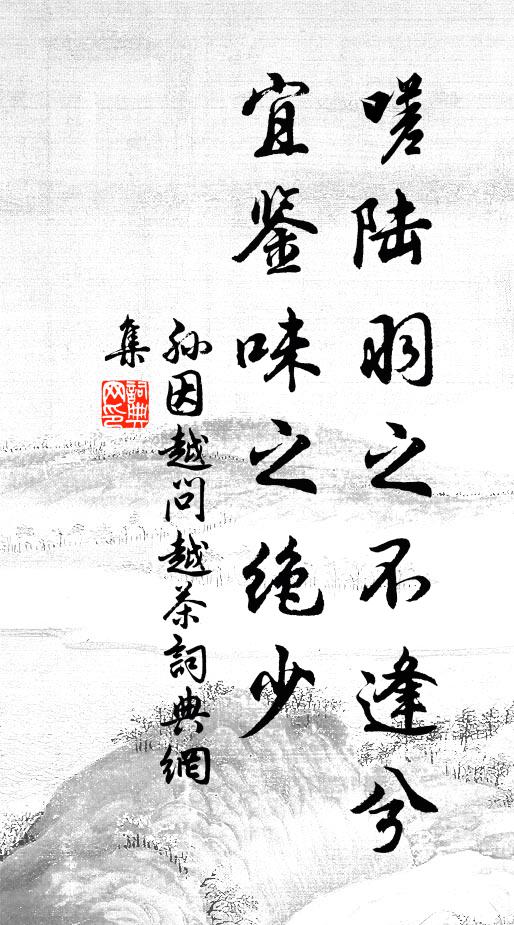 嗟陆羽之不逢兮
宜鉴味之绝少
孙因越问越茶詞典網
集
詞典網印